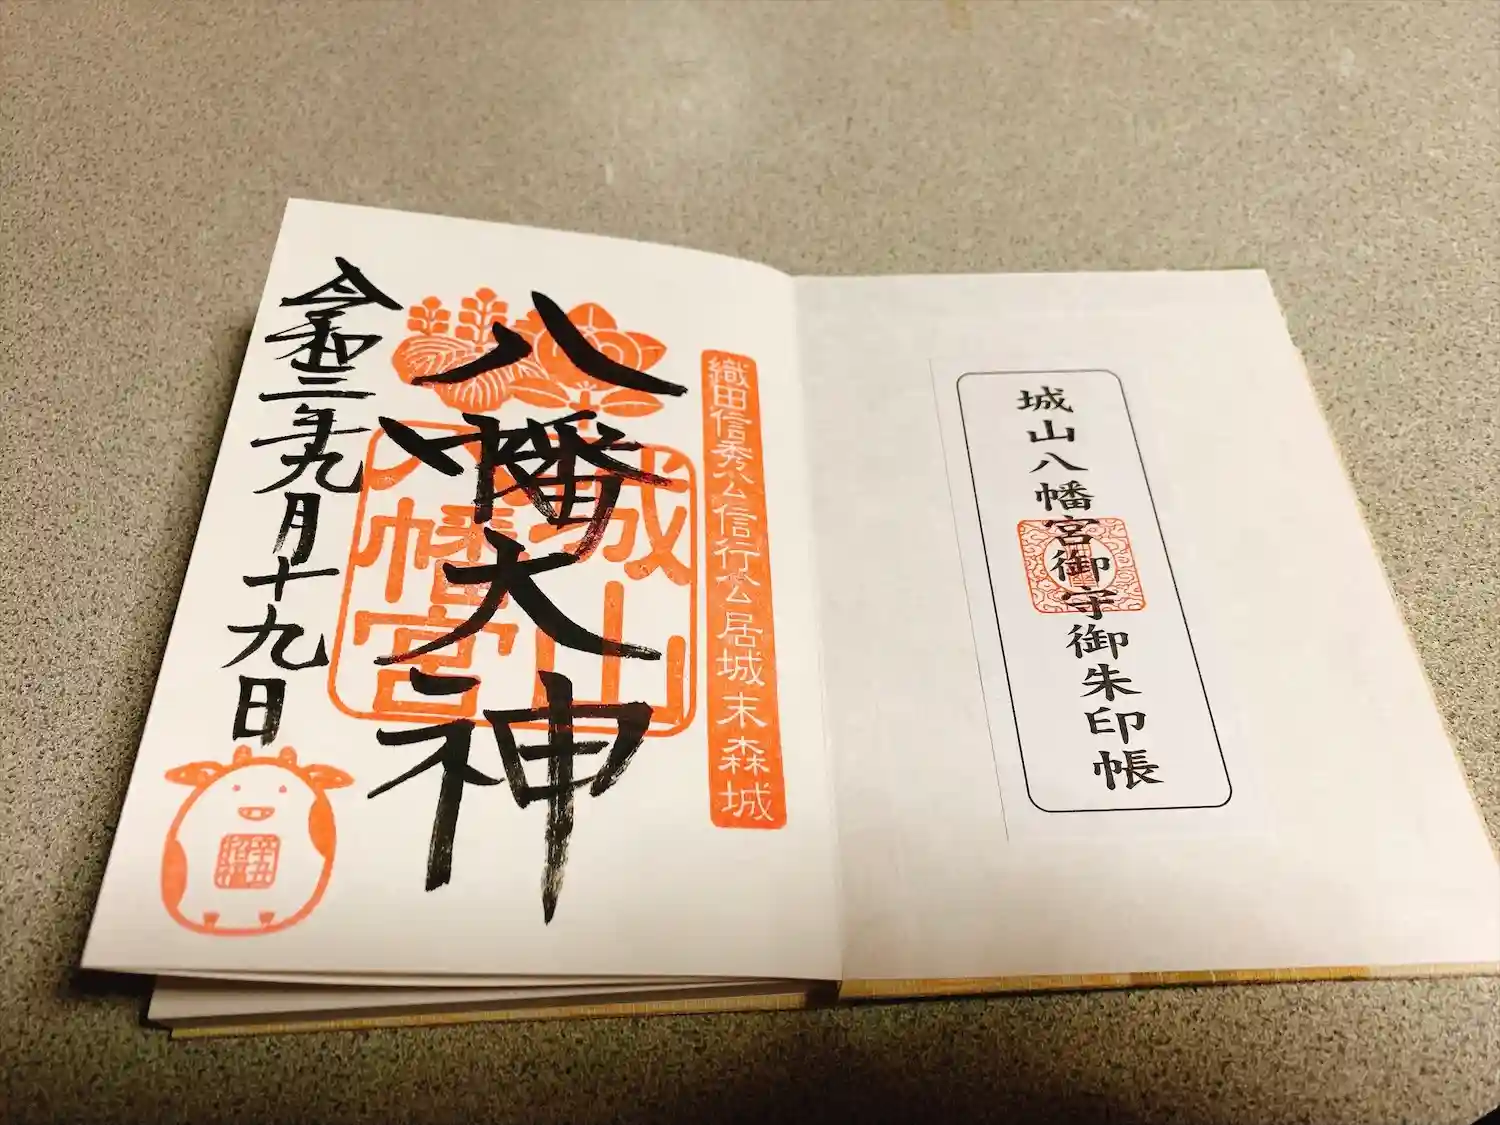 城山八幡宮御守御朱印帳
織田信秀公信行公居城末森城
八幡大神
城山
八幡宮
令和三年九月十九日
辛丑